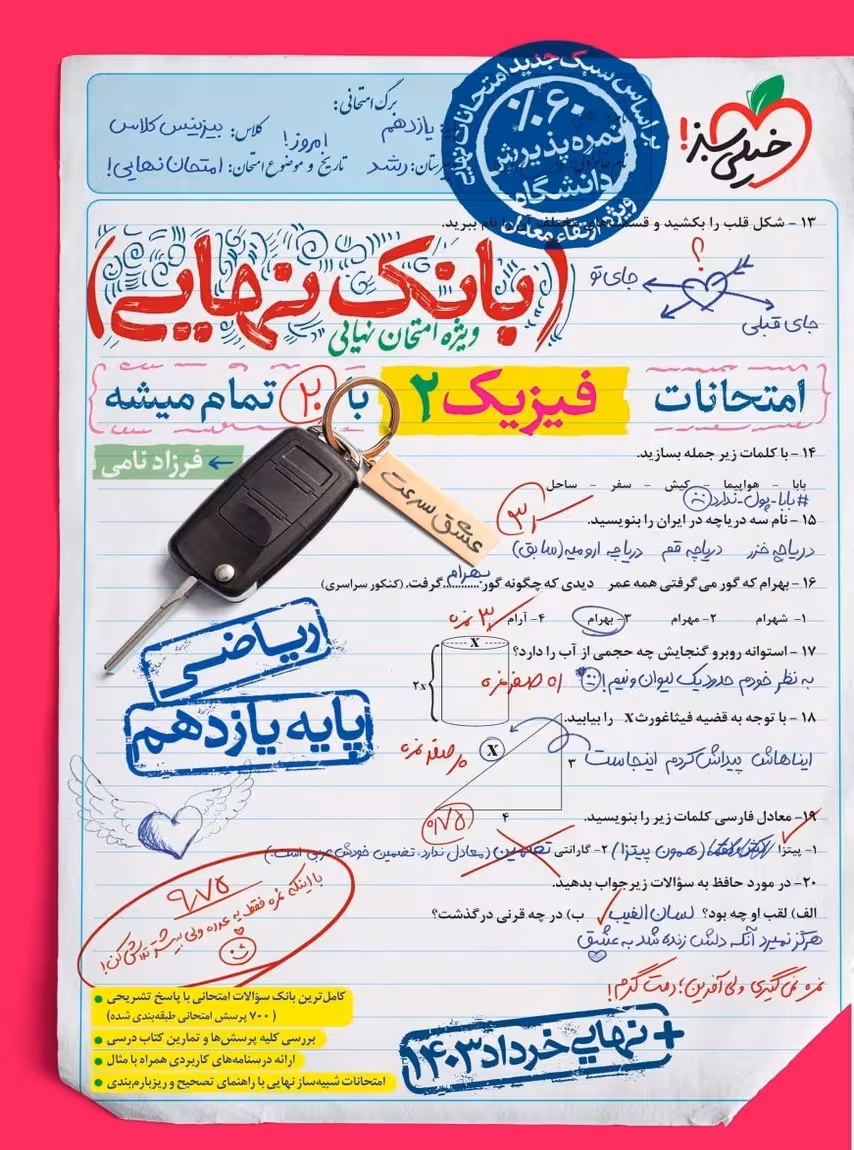 خیلی سبز!
براساس سبک جدید امتحانات نهایی
۶۰٪
نمره پذیرش
دانشگاه
ویژه ارتقاء معدل
برگ امتحانی:
یازدهم
کلاس: بیزینس کلاس
رشد
تاریخ و موضوع امتحان: امروز! امتحان نهایی!
۱۳ - شکل قلب را بکشید و قسمت‌های مختلف آن را نام ببرید.
؟
جای تو
جای قبلی
(بانک نهایی)
ویژه امتحان نهایی
امتحانات فیزیک ۲ با ۲۰ تمام میشه
← فرزاد نامی
عشق سرعت
۱۴ - با کلمات زیر جمله بسازید.
بابا - هواپیما - کیش - سفر - ساحل
#بابا-پول-ندارد
۱۵ - نام سه دریاچه در ایران را بنویسید.
دریاچه خزر دریاچه قم دریاچه ارومیه (سابق)
۱۶ - بهرام که گور می‌گرفتی همه عمر دیدی که چگونه گور..بهرام..گرفت. (کنکور سراسری)
۱- شهرام ۲- مهرام ۳- بهرام ۴- آرام ۳ نمره
۱۷ - استوانه روبرو گنجایش چه حجمی از آب را دارد؟
X
۲x
به نظر خودم حدود یک لیوان و نیم!
۱۸ - با توجه به قضیه فیثاغورث X را بیابید.
ایناهاش پیداش کردم اینجاست
X
۳
۴
صفر نمره
۰/۷۵
ریاضی
پایه یازدهم
۱۹- معادل فارسی کلمات زیر را بنویسید.
۱- پیتزا (همون پیتزا) ۲- گارانتی تضمین (معادل ندارد. تضمین خودش عربی است.)
۲۰- در مورد حافظ به سؤالات زیر جواب بدهید.
الف) لقب او چه بود؟ لسان الغیب ب) در چه قرنی درگذشت؟
هرگز نمیرد آنکه دلش زنده شد به عشق
نمره نمی‌گیری ولی آفرین؛ دمت گرم!
۹/۷۵
با اینکه نمره فقط یه عدده ولی بیشتر تلاش کن!
کامل‌ترین بانک سؤالات امتحانی با پاسخ تشریحی
(۷۰۰ پرسش امتحانی طبقه‌بندی شده)
بررسی کلیه پرسش‌ها و تمارین کتاب درسی
ارائه درسنامه‌های کاربردی همراه با مثال
امتحانات شبیه‌ساز نهایی با راهنمای تصحیح و ریزبارم‌بندی
+ نهایی خرداد ۱۴۰۳